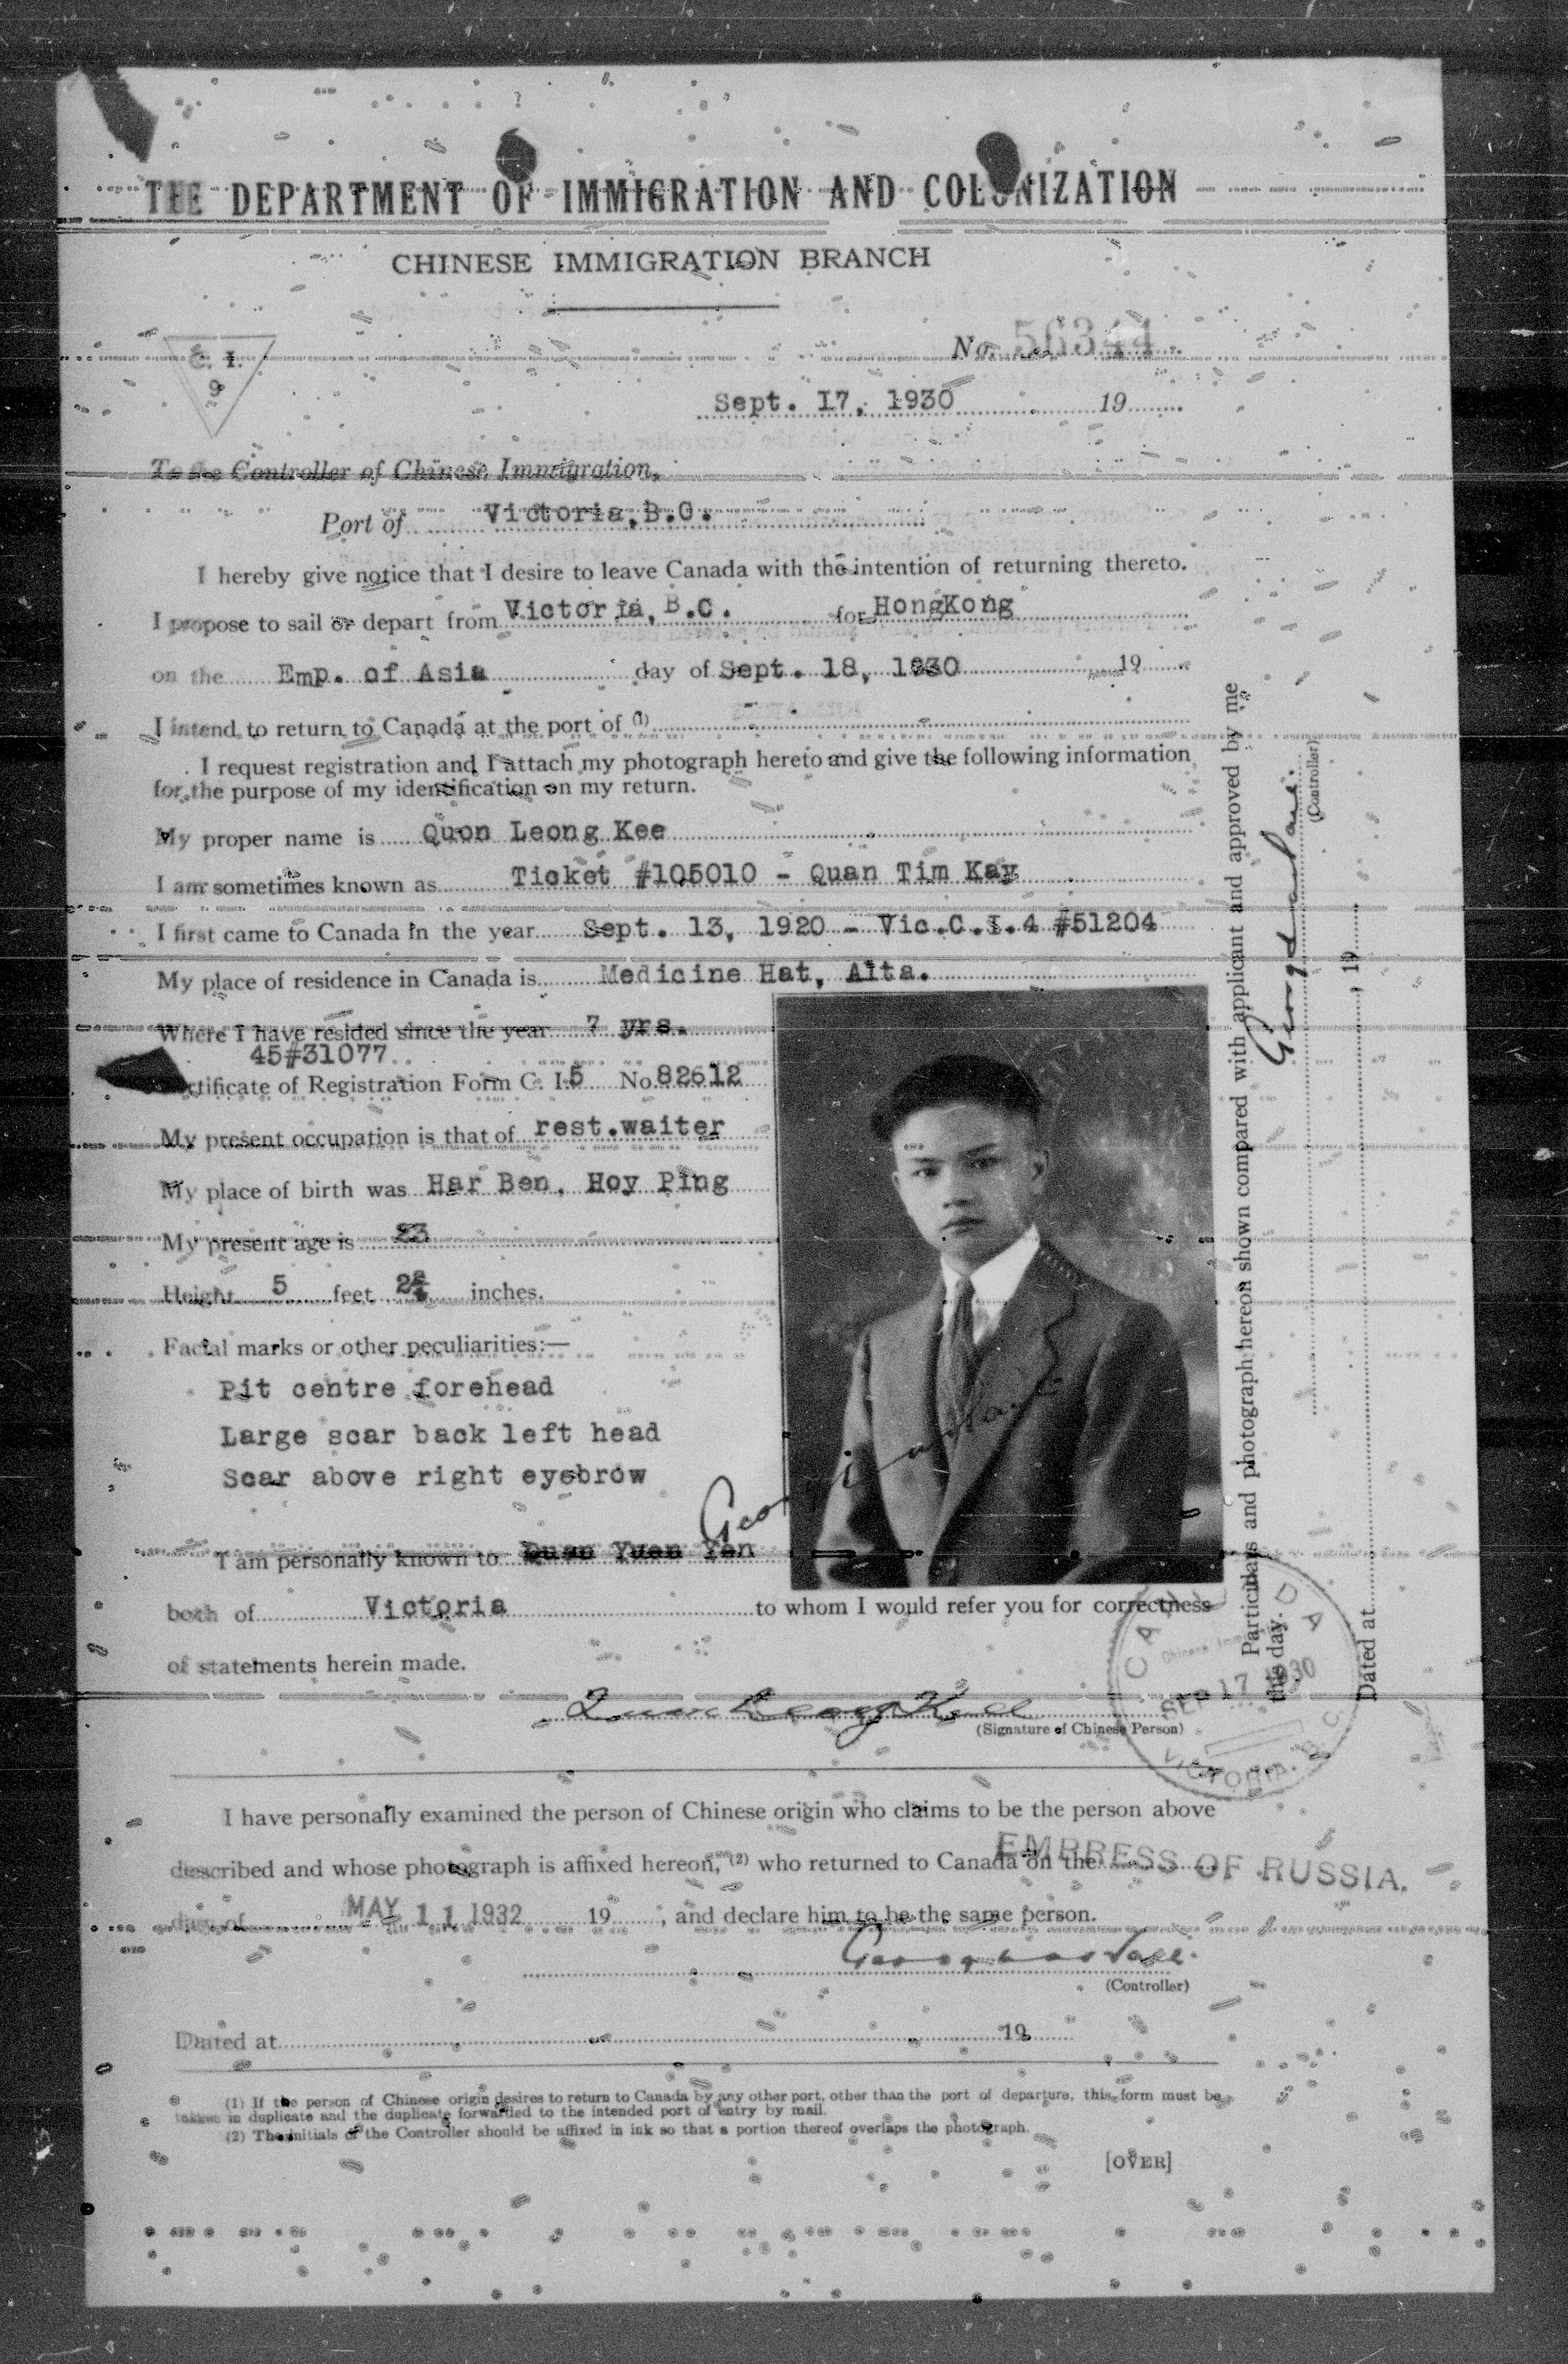 THE DEPARTMENT OF IMMIGRATION AND COLONIZATION
CHINESE IMMIGRATION BRANCH
C. I.
9
No. 56344
Sept. 17, 1930 19
To the Controller of Chinese Immigration,
Port of Victoria, B.C.
I hereby give notice that I desire to leave Canada with the intention of returning thereto.
I propose to sail or depart from Victoria, B.C. for HongKong
on the Emp. of Asia day of Sept. 18, 1930 19
I intend to return to Canada at the port of (1)
I request registration and I attach my photograph hereto and give the following information
for the purpose of my identification on my return.
My proper name is Quon Leong Kee
I am sometimes known as Ticket #105010 - Quan Tim Kay
I first came to Canada in the year Sept. 13, 1920 - Vic.C.I.4 #51204
My place of residence in Canada is Medicine Hat, Alta.
Where I have resided since the year 7 yrs.
45#31077
Certificate of Registration Form C. I. 5 No. 82612
My present occupation is that of rest.waiter
My place of birth was Har Ben, Hoy Ping
My present age is 23
Height 5 feet inches.
Facial marks or other peculiarities:—
Pit centre forehead
Large scar back left head
Scar above right eyebrow
I am personally known to Yuen Yen
both of Victoria to whom I would refer you for correctness
of statements herein made.
Quon Leong Kee
(Signature of Chinese Person)
CANADA
Chinese
SEP 17 1930
VICTORIA. B.C.
Particulars and photograph hereon shown compared with applicant and approved by me
this day.
(Controller)
Dated at , 19
I have personally examined the person of Chinese origin who claims to be the person above
described and whose photograph is affixed hereon, (2) who returned to Canada on the EMPRESS OF RUSSIA.
day of MAY 11 1932 19 , and declare him to be the same person.
(Controller)
Dated at 19
(1) If the person of Chinese origin desires to return to Canada by any other port, other than the port of departure, this form must be
taken in duplicate and the duplicate forwarded to the intended port of entry by mail.
(2) The initials of the Controller should be affixed in ink so that a portion thereof overlaps the photograph.
[OVER]